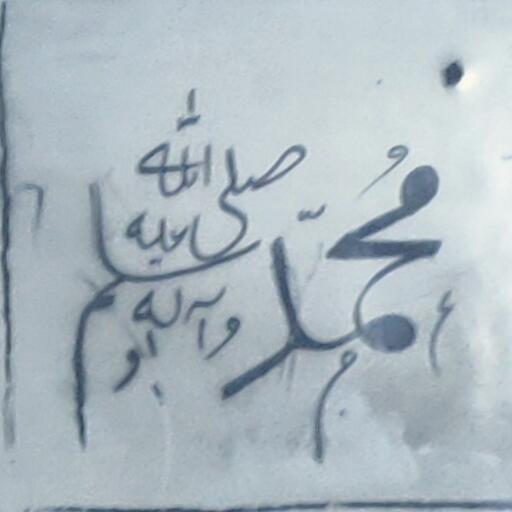 مُحَمَّد
صلى الله
عليه
وآله
وسلم